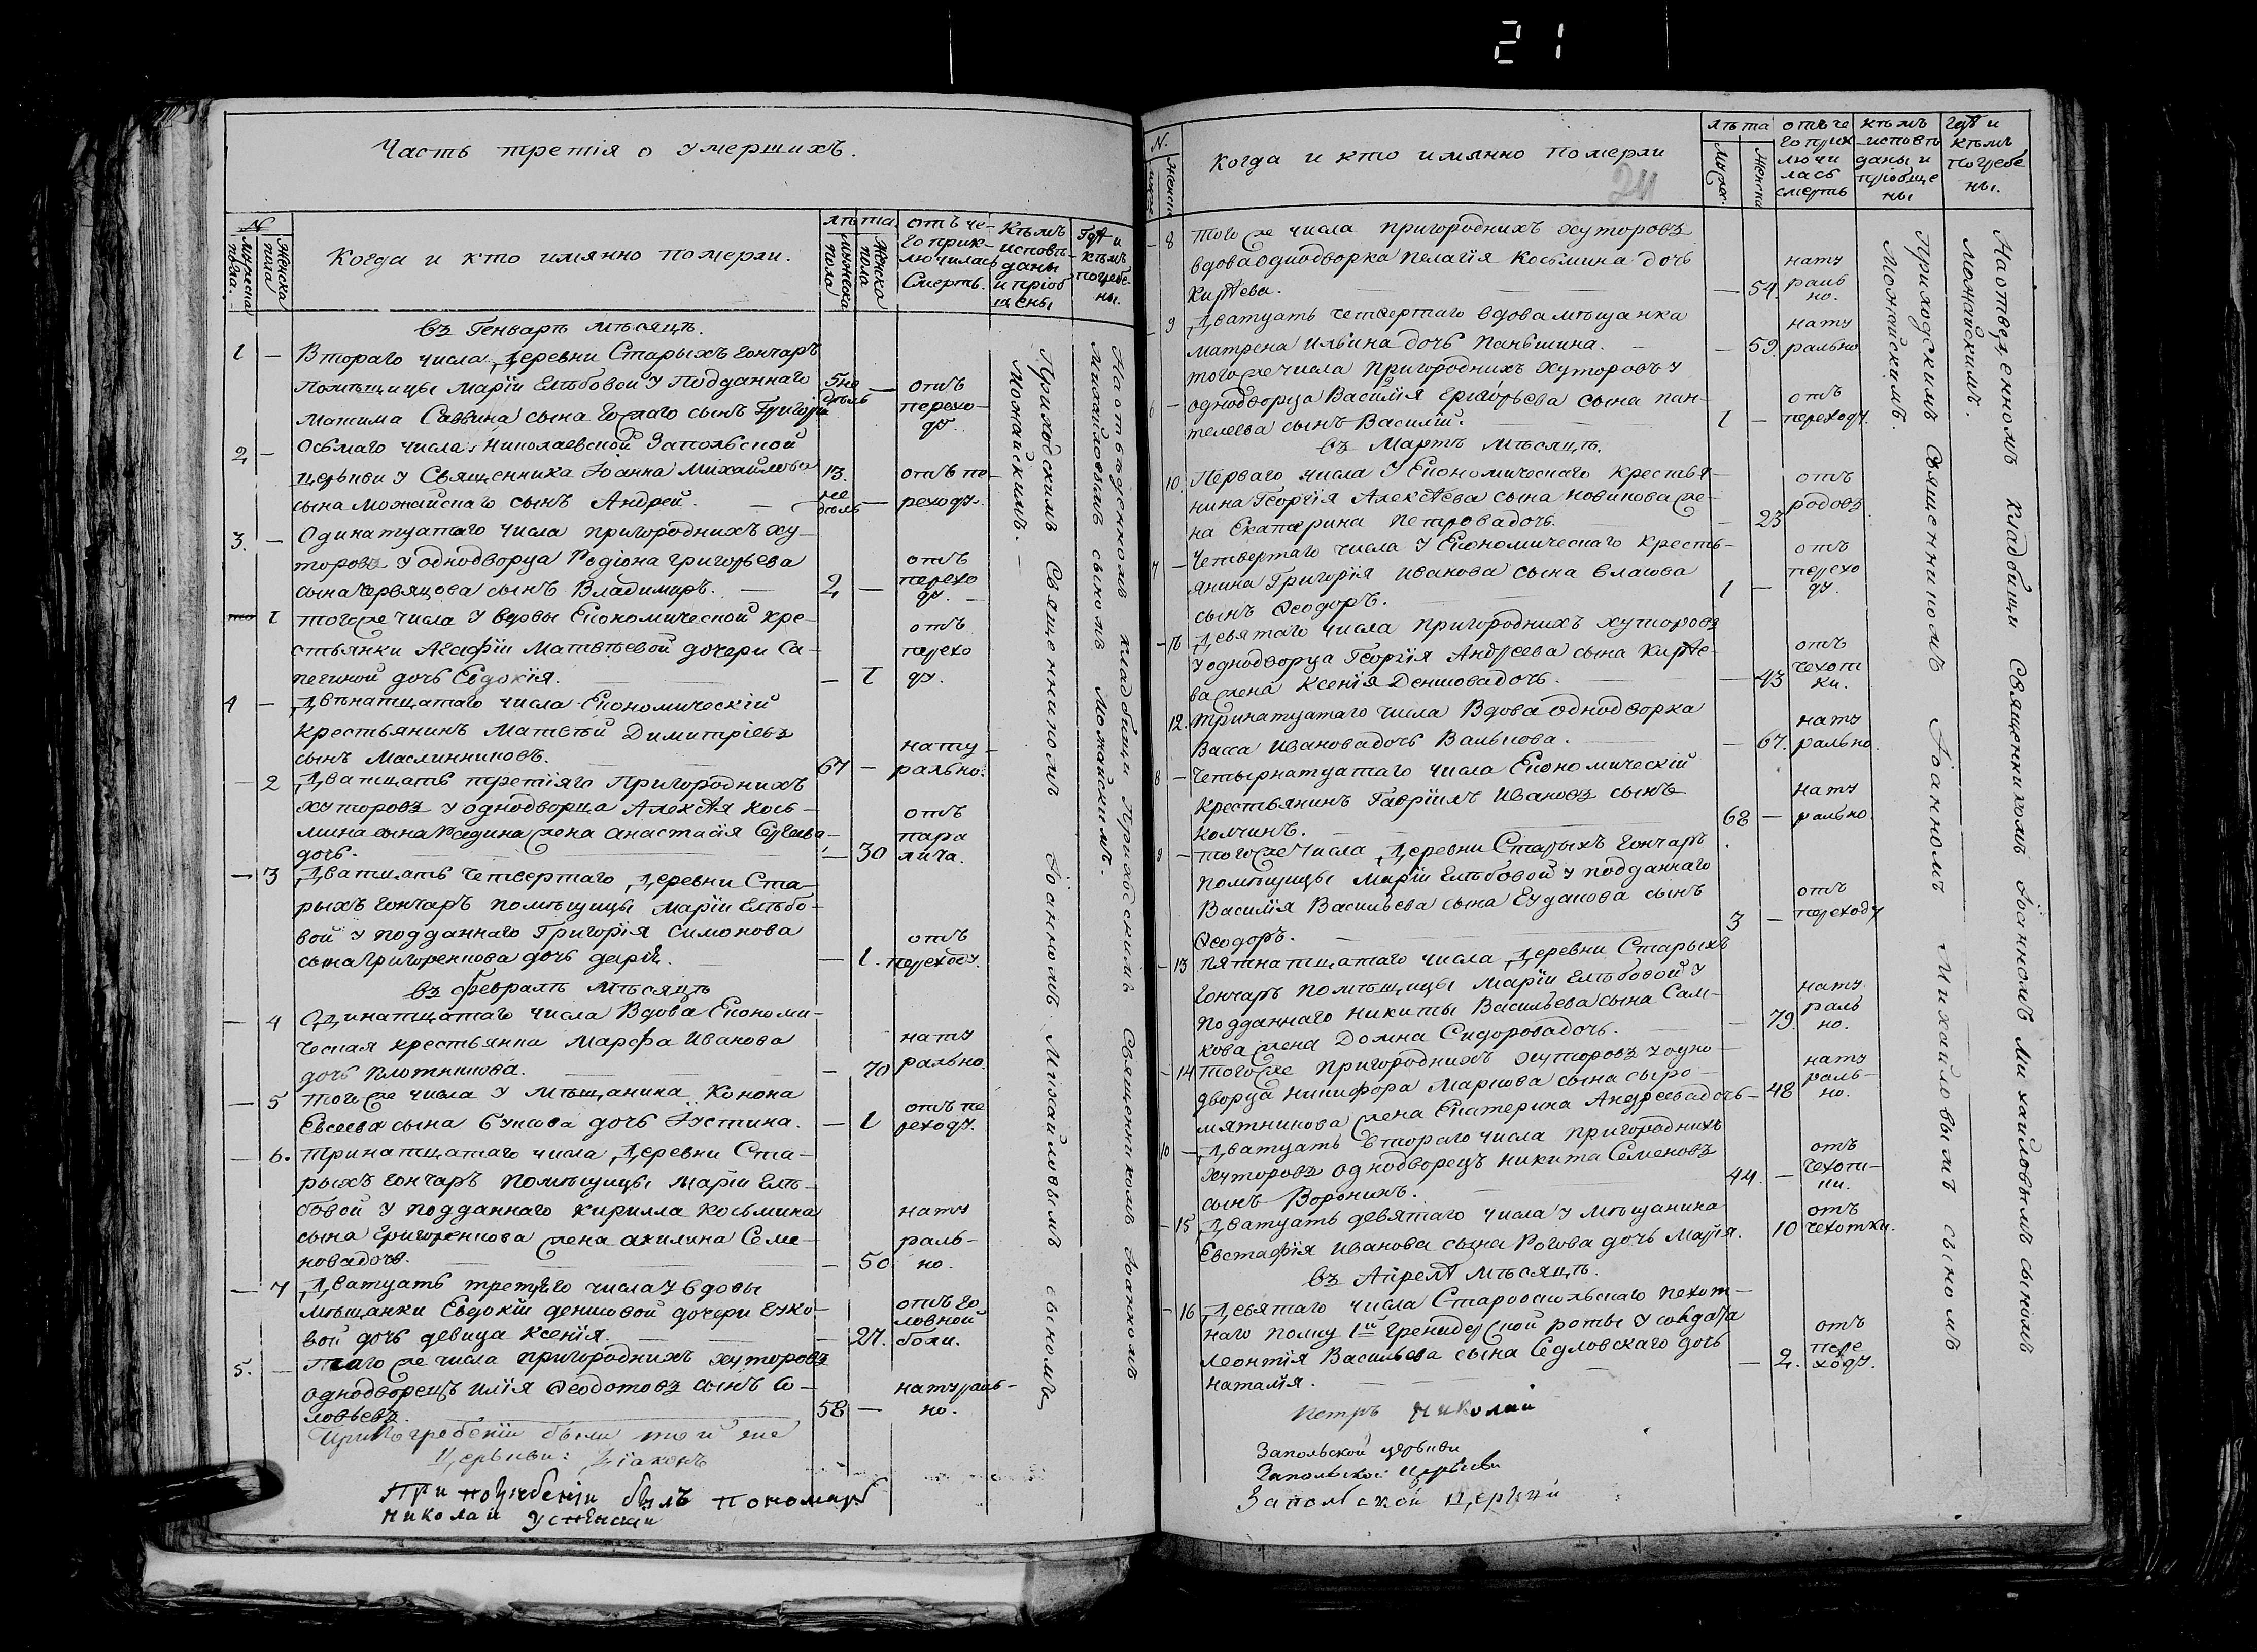 21
Часть третія о умершихъ.
N
Мужеска пола.
Женска пола
Когда и кто имянно померли.
лѣта
мужеска пола
женска пола
отъ че-
го прик-
лючилась
Смерть.
Кѣмъ
исповѣ-
даны
и пріоб
щены
Гдѣ и
кѣмъ
погребе-
ны.
въ Генварѣ мѣсяцѣ.
1 — Втораго числа Деревни Старыхъ Гончаръ
помѣщицы Маріи Глѣбовой у Подданнаго
5 не
дѣль — отъ
перехо-
ду.
сына сынъ Григорій
2 — Осьмаго числа Николаевской Запольской
церькви у Священника Іоанна Михайлова
сына Можайскаго сынъ Андрей. —
13.
не
дѣль — отъ пе-
реходу.
3. — Одинатцатаго числа пригороднихъ ху-
торовъ у однодворца Родіона Григорьева
сына Червяцова сынъ Владимиръ. —
2 — отъ
перехо
ду. —
1 того же числа у вдовы Економической кре-
стьянки Агафіи Матвѣевой дочери Са-
пегиной дочь Евдокія.
— 1 отъ
перехо
ду.
4 — Двѣнатцатаго числа Економическій
крестьянинъ Матвѣй Димитріевъ
сынъ Маслинниковъ.
67 — нату-
рально.
— 2 Дватцать третіяго Пригороднихъ
хуторовъ у однодворца Алексѣя Кось-
мина сына Редина жена Анастасія Сергѣева
дочь.
— 30 отъ
пара
лича.
— 3 Дватцать четвертаго Деревни Ста-
рыхъ Гончаръ помѣщицы Маріи Глѣбо-
вой у подданнаго Григорія Симонова
сына Григоренкова дочь Дарія.
— 1. отъ
переходу.
въ февралѣ мѣсяцѣ
— 4 Одинатцатаго числа Вдова Економи-
ческая крестьянка Марфа Иванова
дочь Плотникова.
— 70 нату
рально.
— 5 того же числа у мѣщанина Конона
Евсеева сына дочь Іустина.
— 1 отъ пе
реходу.
— 6. тринатцатаго числа Деревни Ста-
рыхъ Гончаръ помѣщицы Маріи Глѣ-
бовой у подданнаго Кирилла Косьмина
сына Григоренкова жена Акилина Семе-
нова дочь.
— 50 нату
раль-
но.
— 7 Дватцать третяго числа у вдовы
мѣщанки Евдокіи дочери
вой дочь девица Ксенія.
— 27. отъ го
ловной
боли.
5. — Того же числа пригороднихъ хуторовъ
однодворецъ Илія Феодотовъ сынъ Со-
ловьевъ.
58 — натураль-
но.
При погребеніи были той же
Церькви: Діаконъ
При погребеніи былъ пономарь
Николай Успенскій
Приходскимъ Священникомъ Іоанномъ Михайловымъ сыномъ
Можайскимъ. —
На отведенномъ кладбищи Приходскимъ Священникомъ Іоанномъ
Михайловымъ сыномъ Можайскимъ.
N.
Женска
Когда и кто имянно померли
24
лѣта
Мужеск.
Женска
отъ че
го прик
лючи
лась
смерть
кѣмъ
исповѣ
даны и
пріобще
ны
Гдѣ и
кѣмъ
погребе
ны.
— 8 того же числа пригороднихъ хуторовъ
вдова однодворка Пелагія Косьмина дочь
Кирѣева.
— 54. нату
раль
но.
— 9 Дватцать четвертаго вдова мѣщанка
Матрена Ильина дочь Паньшина.
— 59. нату
рально
6 — того же числа Пригороднихъ Хуторовъ у
однодворца Василія Григорьева сына Пан-
телеева сынъ Василій.
1 — отъ
переходу.
въ Мартѣ мѣсяцѣ.
10. Перваго числа у Економическаго крестья-
нина Георгія Алексѣева сына Новикова же-
на Екатерина Петрова дочь.
— 23 отъ
родовъ
7 — Четвертаго числа у Економическаго кресть-
янина Григорія Иванова сына Власова
сынъ Феодоръ.
1 — отъ
перехо
ду.
Девятаго числа пригороднихъ хуторовъ
у однодворца Георгія Андреева сына Кирѣе-
ва жена Ксенія дочь.
— 43 отъ
чехот
ки.
12. тринатцатаго числа Вдова однодворка
Васса Иванова дочь
— 67. нату
рально.
8 — Четырнатцатаго числа Економическій
крестьянинъ Гавріилъ Ивановъ сынъ
Колчинъ.
68 — нату
рально.
9 — того же числа Деревни Старыхъ Гончаръ
помѣщицы Маріи Глѣбовой у подданнаго
Василія Васильева сына сынъ
Феодоръ.
3 — отъ
переходу
— 13 пятнатцатаго числа Деревни Старыхъ
Гончаръ помѣщицы Маріи Глѣбовой у
подданнаго Никиты Васильева сына Сам-
кова жена Домна Сидорова дочь.
— 79. нату
раль
но.
— 14 того же Пригороднихъ Хуторовъ у одно-
дворца Никифора Маркова сына Сыро-
мятникова жена Екатерина Андреева дочь
— 48 нату
раль-
но.
10 — Дватцать втораго числа пригороднихъ
хуторовъ однодворецъ Никита Семеновъ
сынъ Воронинъ.
44. — отъ
чехот-
ки.
— 15 Дватцать девятаго числа у мѣщанина
Евстафія Иванова сына Рогова дочь Марія.
10 отъ
чехотки.
въ Апрелѣ мѣсяцѣ.
— 16 Девятаго числа Старооскольскаго пехот-
наго полку 1й гренадерской роты у солдата
Леонтія Васильева сына Седловскаго дочь
Наталія.
— 2. отъ
пере
ходу.
Петръ Николай
Запольской церькви
Запольской Церькви
Запольской Церькви
Приходскимъ Священникомъ Іоанномъ Михайловымъ сыномъ
Можайскимъ.
На отведенномъ кладбищи Священникомъ Іоанномъ Михайловымъ сыномъ
Можайскимъ.